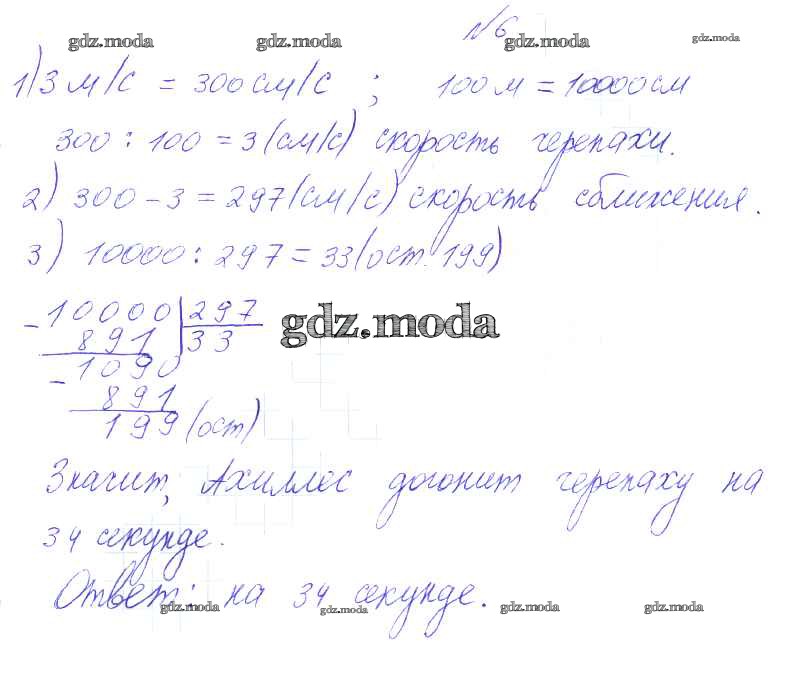 №6
gdz.moda gdz.moda gdz.moda gdz.moda
1) 3 м/с = 300 см/с ; 100 м = 10000 см
300 : 100 = 3 (см/с) скорость черепахи.
2) 300 - 3 = 297 (см/с) скорость сближения.
3) 10000 : 297 = 33 (ост. 199)
- 10000 | 297
891 | 33
gdz.moda
- 1090
891
199 (ост)
Значит, Ахиллес догонит черепаху на
34 секунде.
Ответ: на 34 секунде.
gdz.moda gdz.moda gdz.moda gdz.moda